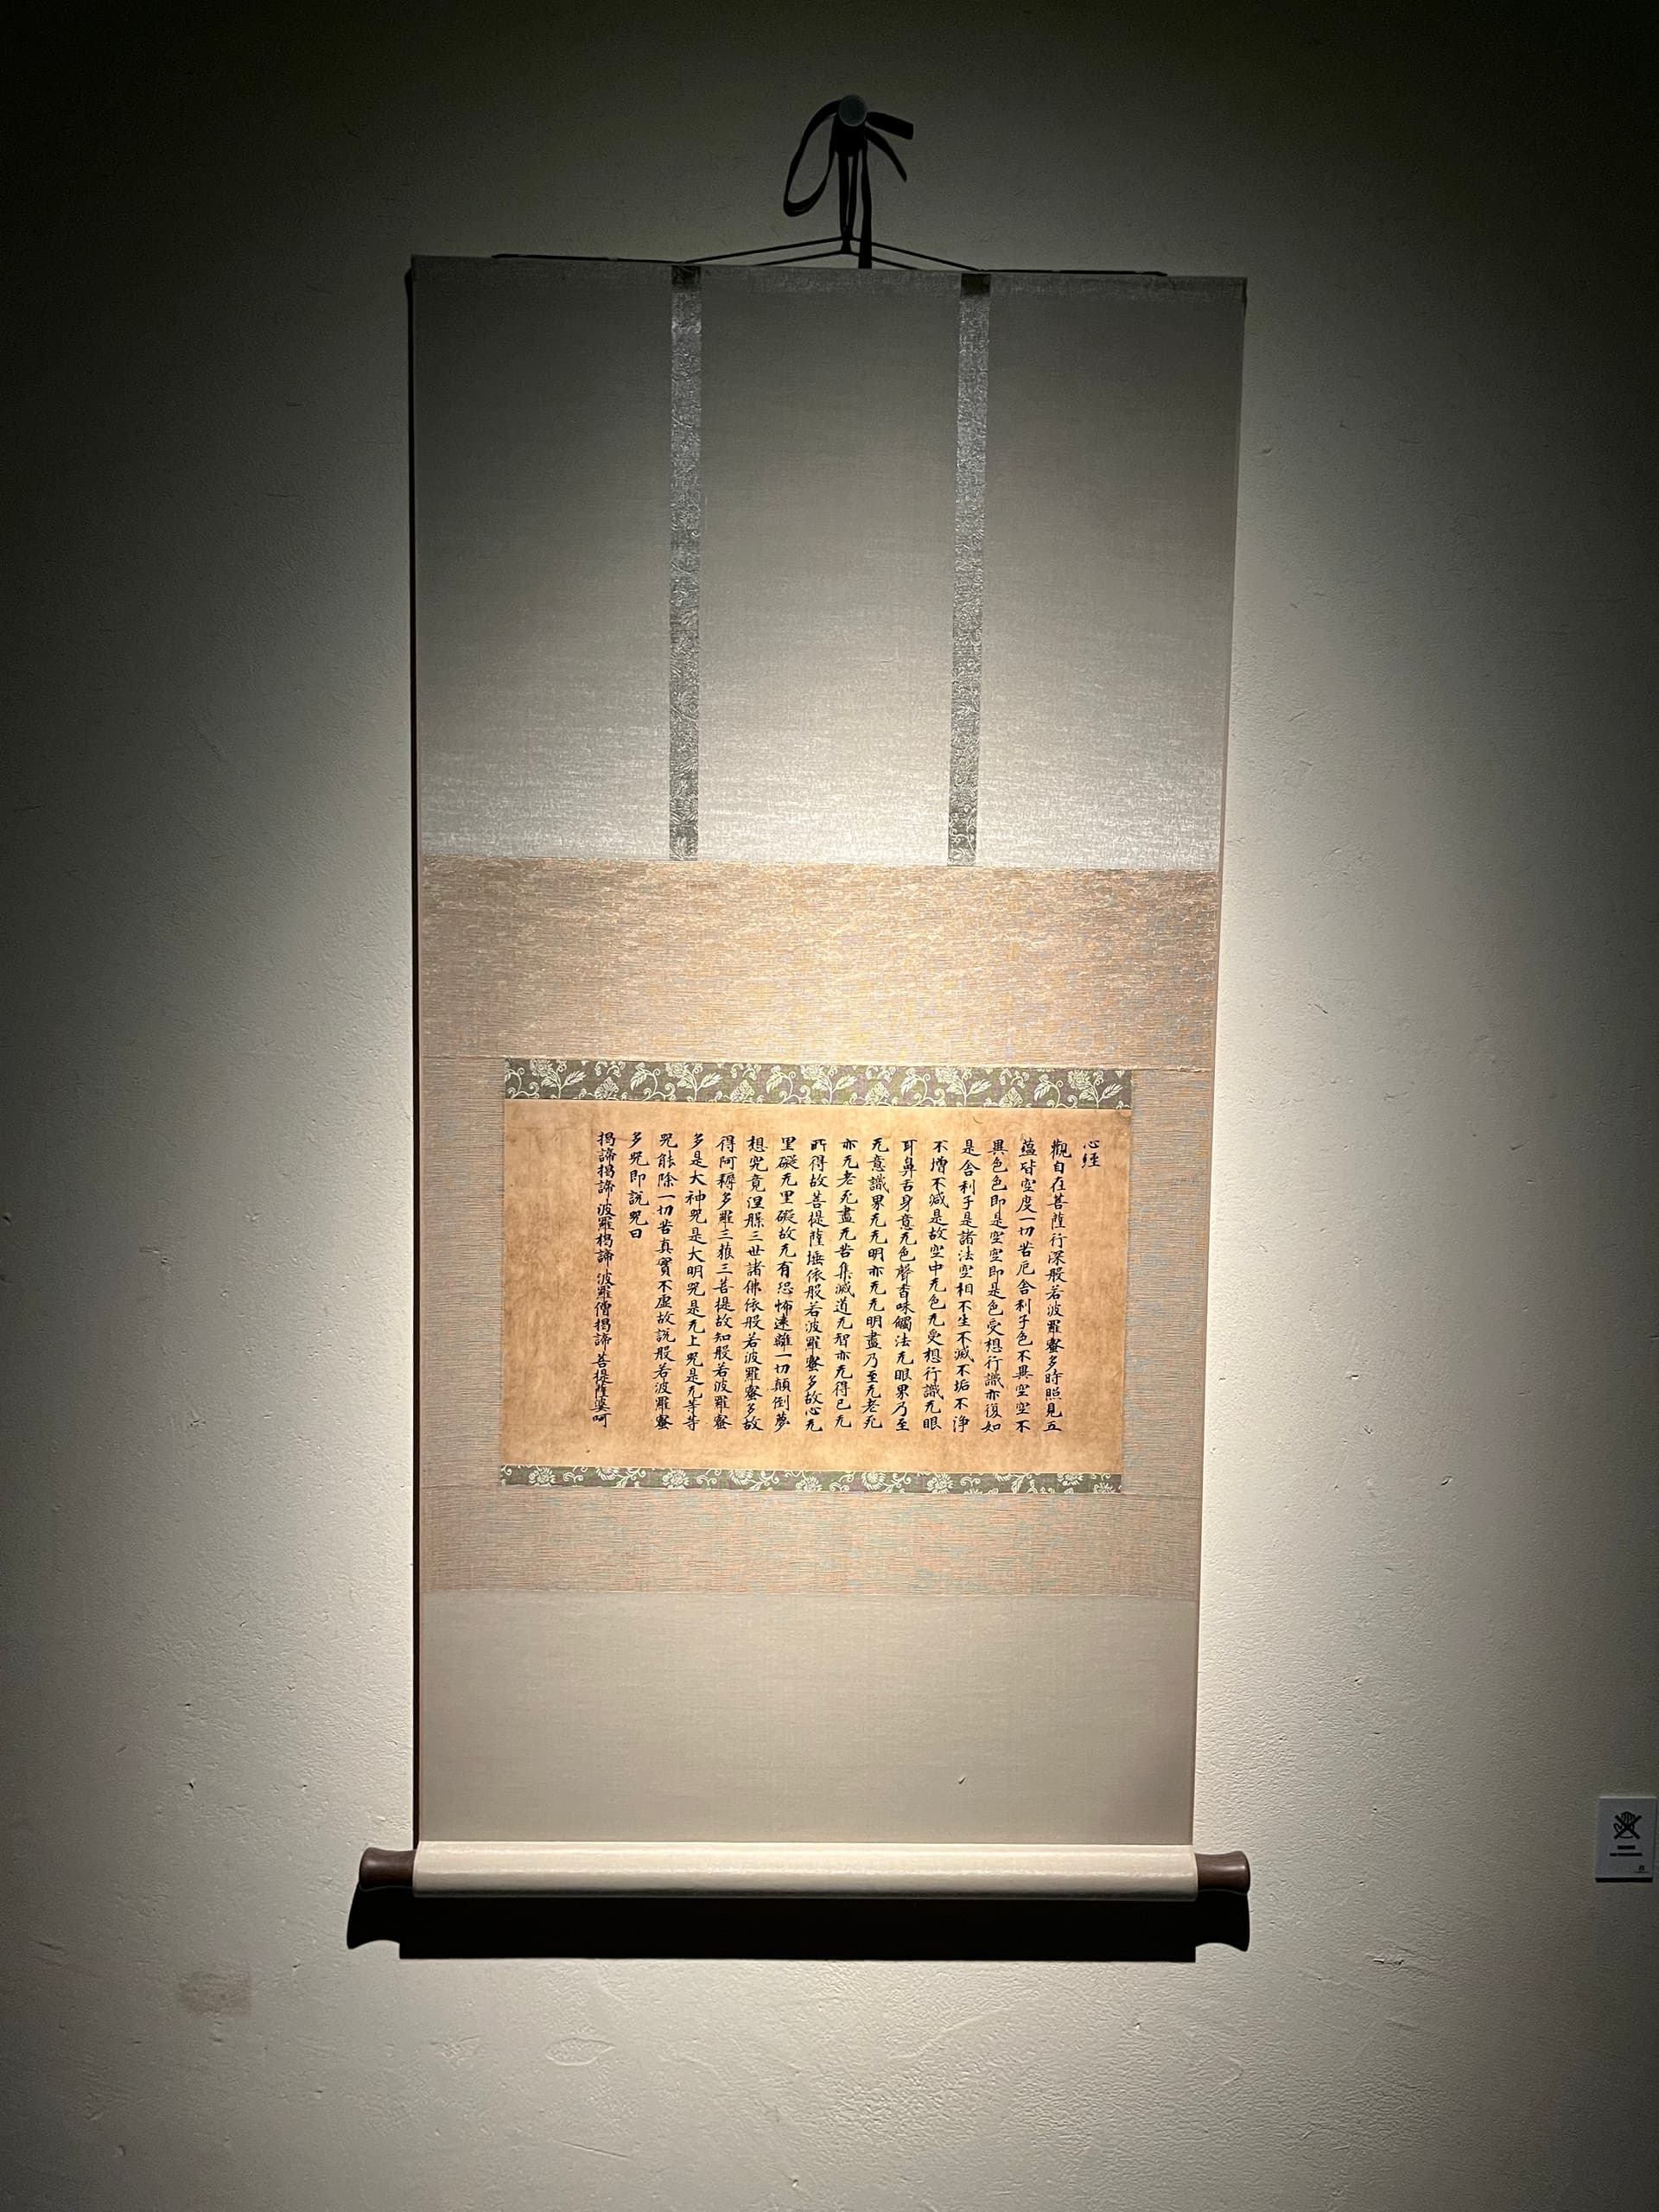 心経
觀自在菩薩行深般若波羅蜜多時照見五
蘊皆空度一切苦厄舍利子色不異空空不
異色色即是空空即是色受想行識亦復如
是舍利子是諸法空相不生不滅不垢不淨
不增不減是故空中无色无受想行識无眼
耳鼻舌身意无色聲香味觸法无眼界乃至
无意識界无无明亦无无明盡乃至无老死
亦无老死盡无苦集滅道无智亦无得已无
所得故菩提薩埵依般若波羅蜜多故心无
罣礙无罣礙故无有恐怖遠離一切顛倒夢
想究竟涅槃三世諸佛依般若波羅蜜多故
得阿耨多羅三藐三菩提故知般若波羅蜜
多是大神咒是大明咒是无上咒是无等等
咒能除一切苦真實不虛故說般若波羅蜜
多咒即說咒曰
揭諦揭諦波羅揭諦波羅僧揭諦菩提薩婆呵